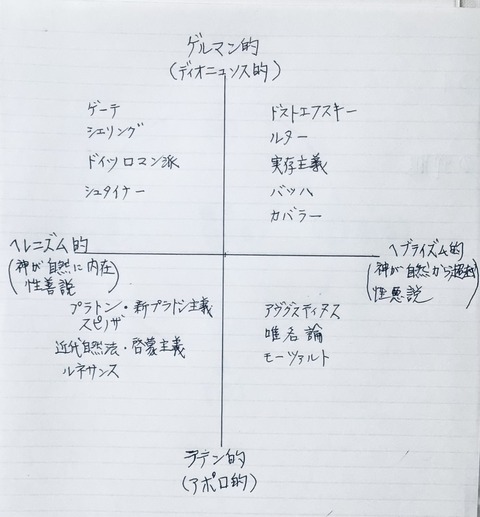 ゲルマン的
(ディオニュソス的)
ゲーテ
シェリング
ドイツロマン派
シュタイナー
ドストエフスキー
ルター
実存主義
バッハ
カバラー
ヘレニズム的
(神が自然に内在
性善説)
ヘブライズム的
(神が自然から超越
性悪説)
プラトン・新プラトン主義
スピノザ
近代自然法・啓蒙主義
ルネサンス
アウグスティヌス
唯名論
モーツァルト
ラテン的
(アポロ的)